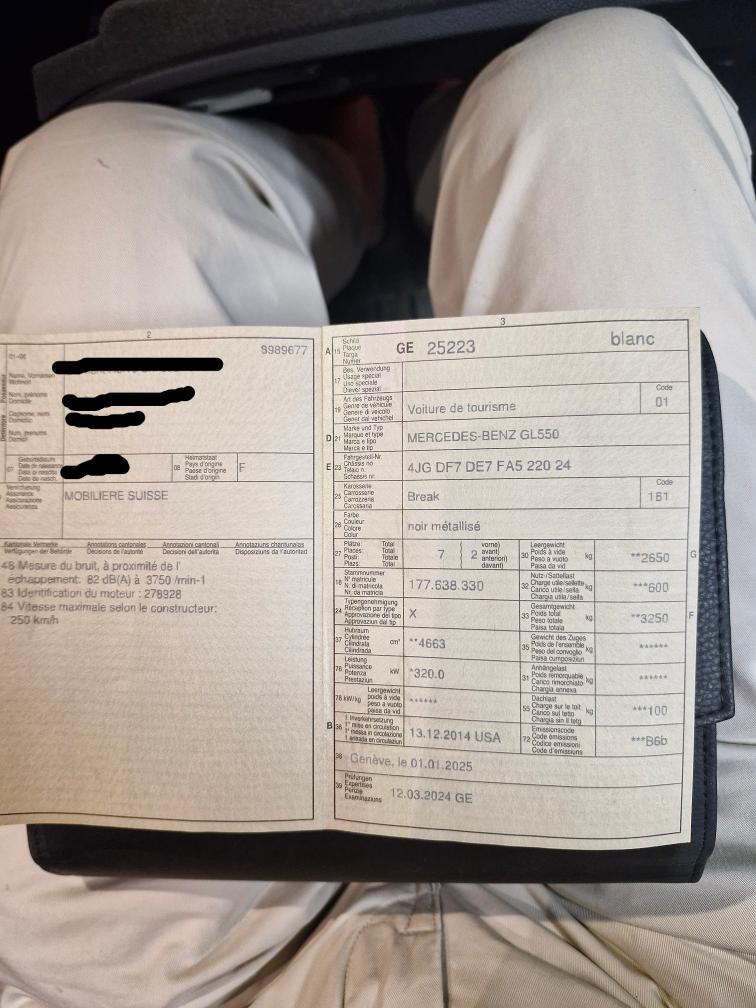 2
9989677
01-06
Name, Vornamen
Wohnort
Nom, prénoms
Domicile
Cognome, nomi
Domicilio
Num, prenums
Domicil
07
Geburtsdatum
Date de naissance
Data di nascita
Data da nasch.
08
Heimatstaat
Pays d'origine
Paese d'origine
Stadi d'origin
F
Versicherung
Assurance
Assicurazione
Assicuranza
MOBILIERE SUISSE
Kantonale Vermerke Annotations cantonales Annotazioni cantonali Annotaziuns chantunalas
Verfügungen der Behörde Décisions de l'autorité Decisioni dell'autorità Disposiziuns da l'autoritad
48 Mesure du bruit, à proximité de l'
échappement: 82 dB(A) à 3750 /min-1
83 Identification du moteur : 278928
84 Vitesse maximale selon le constructeur:
250 km/h
3
A 15
Schild
Plaque
Targa
Numer
GE 25223 blanc
17
Bes. Verwendung
Usage spécial
Uso speciale
Diever spezial
19
Art des Fahrzeugs
Genre de véhicule
Genere di veicolo
Gener dal vehichel
Voiture de tourisme
Code
01
D 21
Marke und Typ
Marque et type
Marca e tipo
Marca e tip
MERCEDES-BENZ GL550
E 23
Fahrgestell-Nr.
Châssis no
Telaio n.
Schassis nr.
4JG DF7 DE7 FA5 220 24
25
Karosserie
Carrosserie
Carrozzeria
Carossaria
Break
Code
161
26
Farbe
Couleur
Colore
Colur
noir métallisé
27
Plätze: Total
Places: Total
Posti: Totale
Plazs: Total
7
2
vorne)
avant)
anteriori)
davant)
30
Leergewicht
Poids à vide
Peso a vuoto
Paisa da vid
kg
**2650
G
18
Stammnummer
N° matricule
N. di matricola
Nr. da matricla
177.638.330
32
Nutz-/Sattellast
Charge utile/sellette
Carico utile/sella
Chargia utila/sella
kg
***600
24
Typengenehmigung
Réception par type
Approvazione del tipo
Approvaziun dal tip
X
33
Gesamtgewicht
Poids total
Peso totale
Paisa totala
kg
**3250
F
37
Hubraum
Cylindrée
Cilindrata
Cilindrada
cm³
**4663
35
Gewicht des Zuges
Poids de l'ensemble
Peso del convoglio
Paisa cumposiziun
kg
******
76
Leistung
Puissance
Potenza
Prestaziun
kW
*320.0
31
Anhängelast
Poids remorquable
Carico rimorchiato
Chargia annexa
kg
******
78 kW/kg
Leergewicht
poids à vide
peso a vuoto
paisa da vid
******
55
Dachlast
Charge sur le toit
Carico sul tetto
Chargia sin il tetg
kg
***100
B 36
1. Inverkehrsetzung
1re mise en circulation
1a messa in circolazione
1. entrada en circulaziun
13.12.2014 USA
72
Emissionscode
Code émissions
Codice emissioni
Code d'emissiuns
***B6b
38
Genève, le 01.01.2025
39
Prüfungen
Expertises
Perizie
Examinaziuns
12.03.2024 GE